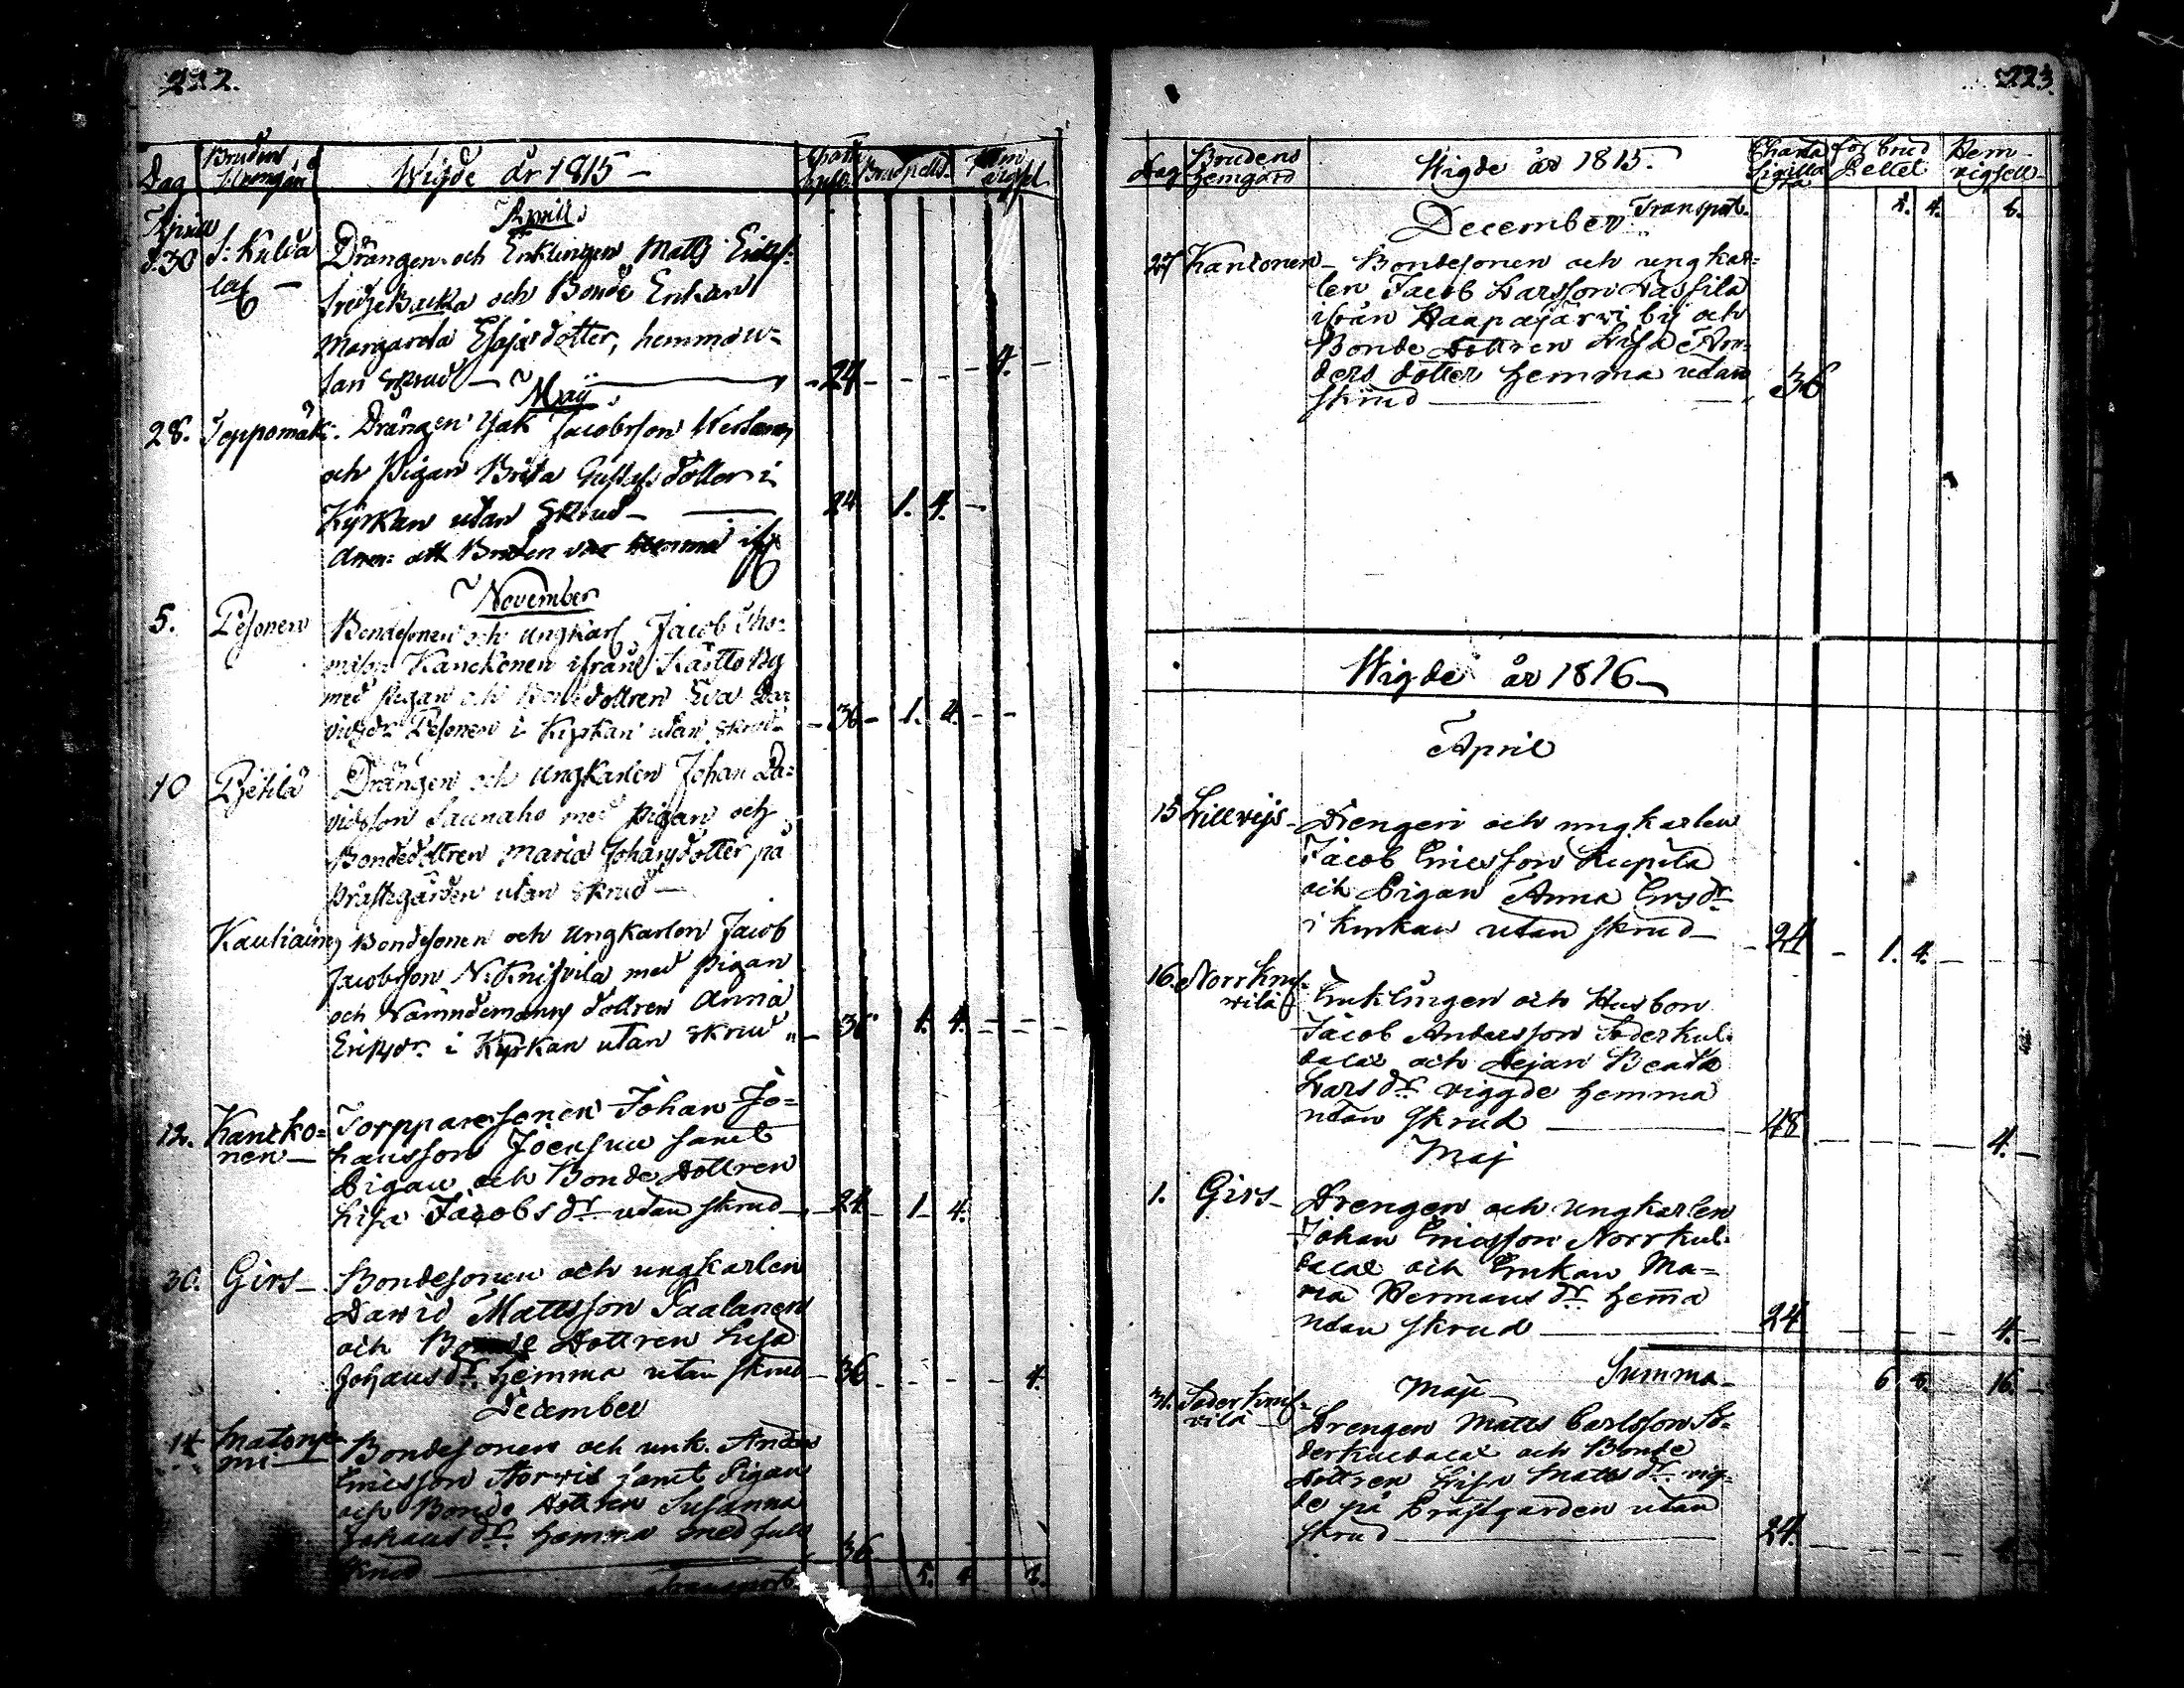 222.
Dag
Brudens
Hemgård
Wigde år 1815 -
Brudpell.
Aprill
d. 30 S: Kulda
Aprill
Drängen och Enklingen Matts Erics-
backa och Bonde Enkan
Margareta Esajædotter, hemma u-
tan Skrud - 24 - - - - 4. -
Maij
28. Teppomäki. Drängen Isak Jacobsson
och Pigan Brita Gustafs dotter i
Kyrkan utan Skrud - 24 1. 4. -
Anm: att Bruden var hemma
November
5. Pesonen Bondesonen och ungkarl Jacob Tho-
masson Kanckonen ifrån Kästto by
med pigan och Bonde dottren Eva Da-
vidsdr Pesonen i Kyrkan utan skrud - 36 - 1. 4. - -
10 Pjetilä Drängen och Ungkarlen Johan Da-
vidsson Saunaho med pigan och
Bondedottren Maria Johansdotter på
Prästegården utan skrud -
Kauliain Bondesonen och Ungkarlen Jacob
Jacobsson N: Knifvila med pigan
och Nämndemans dottren Anna
Ericsdr i Kyrkan utan skrud - 36 1. 4. - - -
12. Kancko-
nen - Torpparesonen Johan Jo-
hansson Joensuu samt
Pigan och Bonde Dottren
Lisa Jacobs dr utan skrud - 24 - 1 - 4.
30. Girs - Bondesonen och ungkarlen
David Mattsson Saalanen
och Bonde Dottren Lisa
Johans dr hemma utan skrud - 36 - - - - 4.
December
14 Bondesonen och unk. Anders
Ericsson Storwis samt Pigan
och Bonde dottren Susanna
Johans dr hemma med full
skrud - 36
Transport 5. 4 8.
223.
Dag
Brudens
hemgård
Wigde år 1815.
Charta
Sigillata
för brud
Pellet
Hem-
vigsell -
Transport. 4. 8.
December
27 Kanconen - Bondesonen och ungkar-
len Jacob Larsson Lassila
ifrån Haapajärvi by och
Bonde dottren Lisa An-
ders dotter hemma utan
skrud - 36
Wigde år 1816 -
April
15 Lillvijs - Drengen och ungkarlen
Jacob Ericsson Kupila
och Pigan Anna Ersdr
i kyrkan utan skrud - 24 - 1. 4. - -
16. Norrknif-
vila Enklingen och Husbon
Jacob Andersson Söderkul-
dalax och Pejan Beata
Lars dr viggde hemma
utan skrud - 48 - - - - 4. -
Maj
1. Girs - Drengen och ungkarlen
Johan Ericsson Norrkul-
dalax och Enkan Ma-
ria Hermans dr hemma
utan skrud - 24 - - - - 4. -
Summa - 6 8. 16. -
Maji
31. Söderknif-
vila Drengen Matts Carlsson Sö-
derkuldalax och Bonde
dottren Lisa Matts dr vig-
de på Prästgården utan
skrud - 24. - - - -